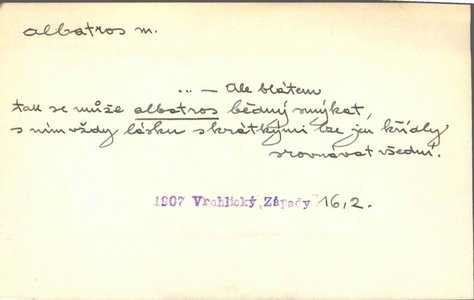 albatros m.
... — Ale blátem
tak se může albatros bědný smýkat,
s ním vždy lásku s krátkými lze jen křídly
srovnávat všední.
1907 Vrchlický, Západy 16,2.